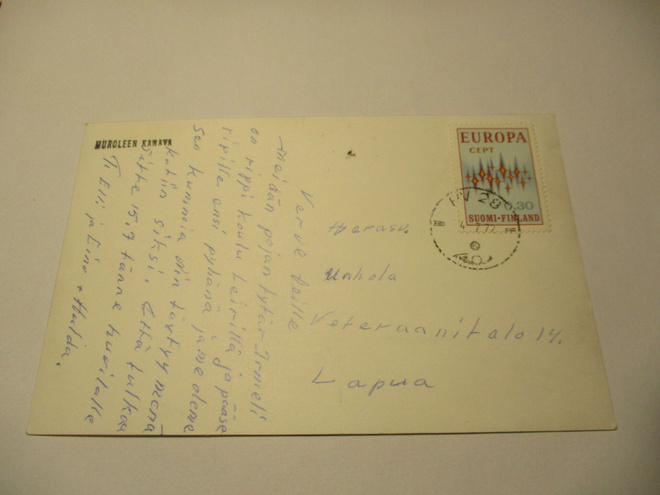 MUROLEEN KANAVA
Terve teille
meidän pojan tytär Irmeli
on rippi koulu leirillä ja pääse
ripille ensi pyhänä ja me olemme
sen kunnia
kotiin siksi. Että tulkaa
sitte 15.7 tänne huvilalle
T. Elli ja Eino + Hulda.
EUROPA
CEPT
0,30
SUOMI-FINLAND
Unhola
Veteraanitalo 14.
Lapua